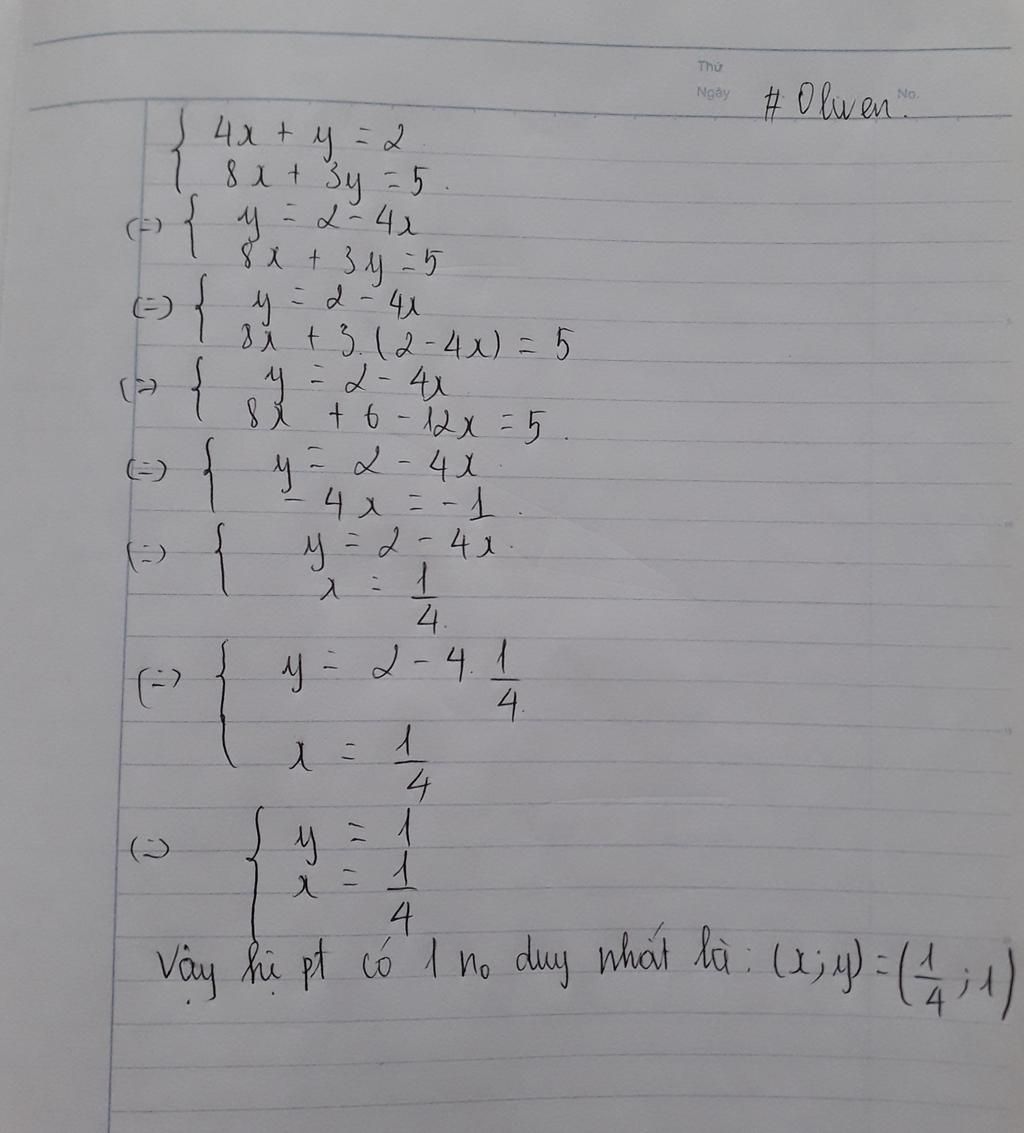 Thứ
Ngày
No.
# Oliven.
{ 4x + y = 2
8x + 3y = 5.
(=) { y = 2 - 4x
8x + 3y = 5
(=) { y = 2 - 4x
8x + 3.(2 - 4x) = 5
(=) { y = 2 - 4x
8x + 6 - 12x = 5.
(=) { y = 2 - 4x
- 4x = - 1.
(=) { y = 2 - 4x.
x = 1/4.
(=) { y = 2 - 4. 1/4.
x = 1/4
(=) { y = 1
x = 1/4
Vậy hệ pt có 1 no duy nhất là: (x;y) = (1/4 ; 1)